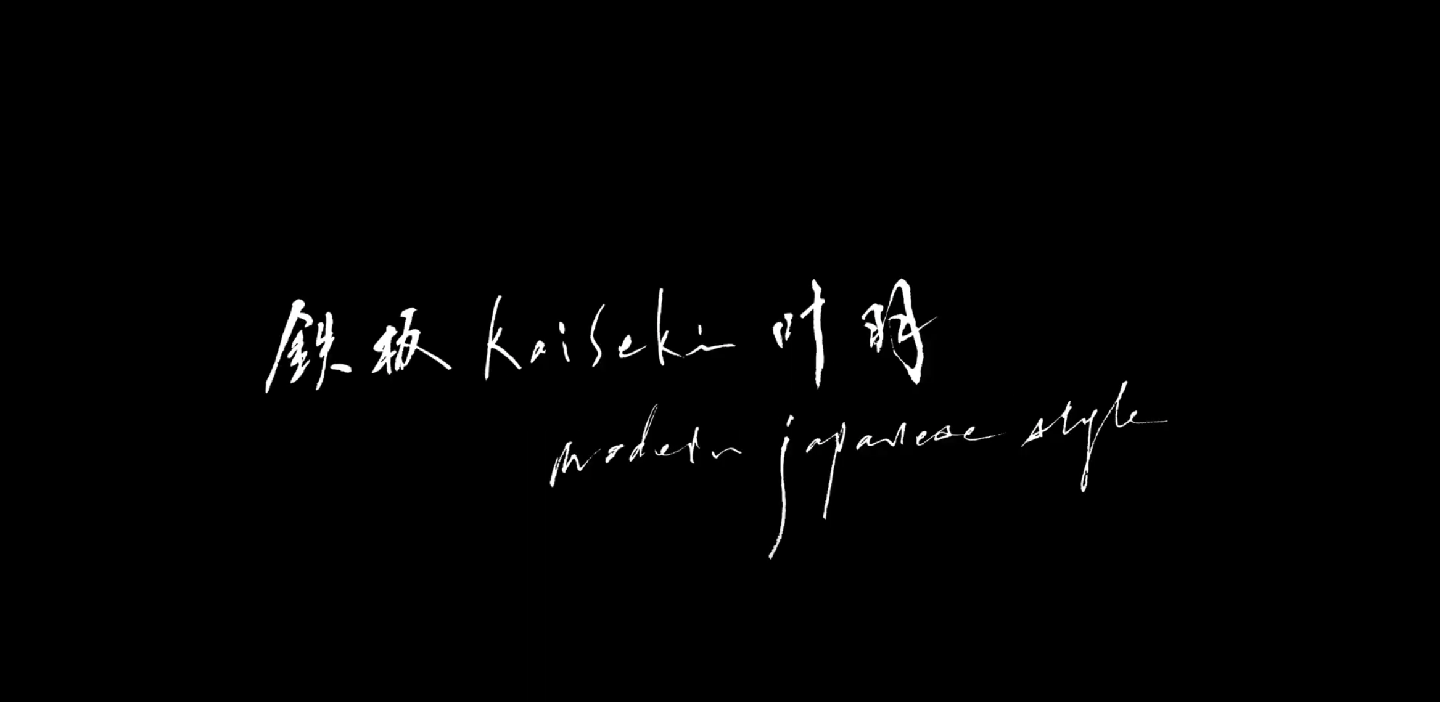 鉄板 kaiseki 叶明
modern japanese style